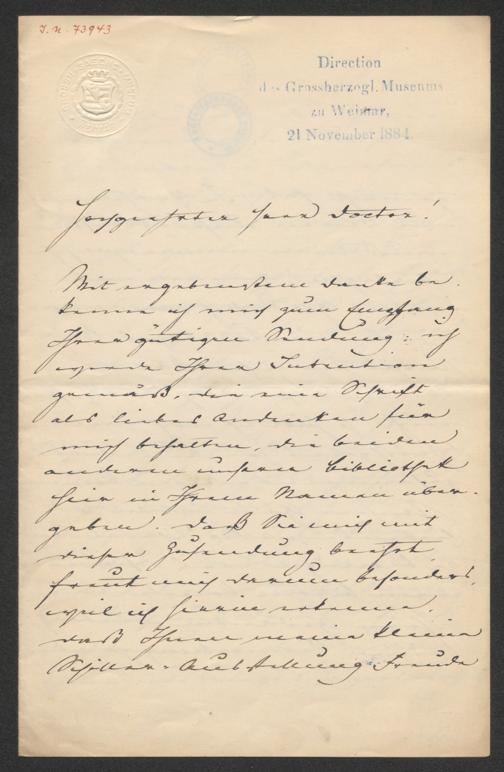 J. N. 73943
Direction
des Grossherzogl. Museums
zu Weimar,
21 November 1884.
Hochgeehrter Herr Doctor!
Mit ergebenstem Danke be-
kenne ich mich zum Empfang
Ihrer gütigen Sendung; ich
werde Ihrer Intention
gemäß, die eine Schrift
als liebes Andenken für
mich behalten, die beiden
anderen unserer Bibliothek
hier in Ihrem Namen über-
geben. Daß Sie mich mit
dieser Zusendung beehrt,
freut mich darum besonders,
weil ich hierin erkenne,
daß Ihnen meine kleine
Schiller-Ausstellung Freude